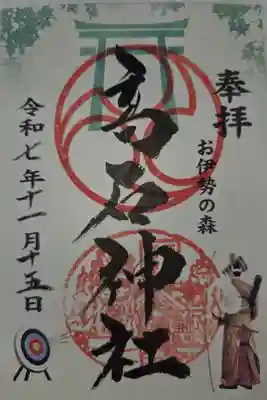 奉拝
お伊勢の森
高石神社
令和七年十一月十五日